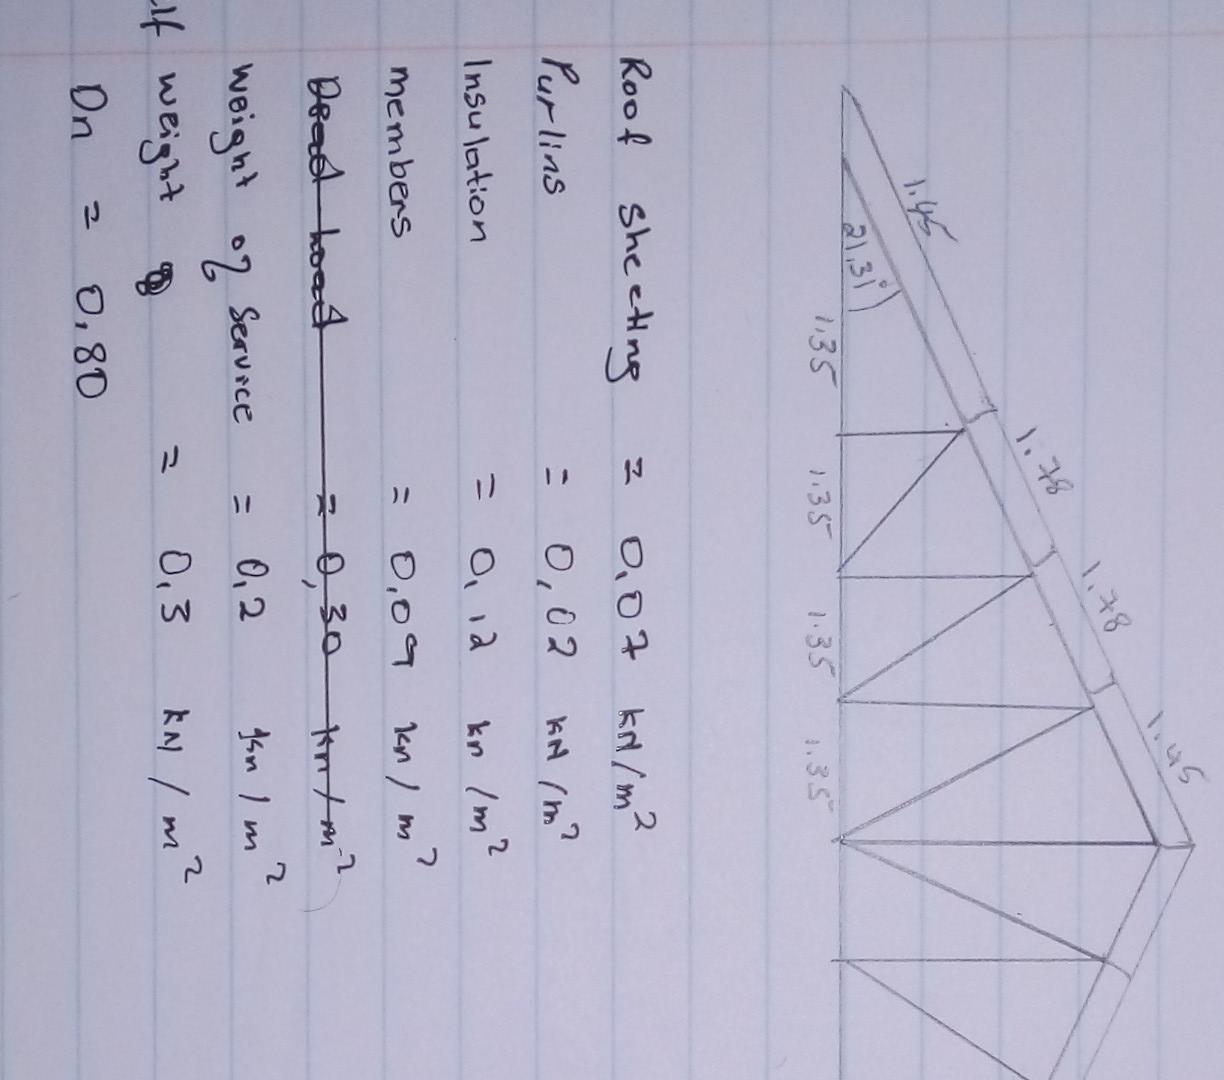 1.45
1.78
1.78
1.45
21.31°
1.35
1.35
1.35
1.35
Roof sheeting = 0,07 kN/m²
Purlins = 0,02 kN/m²
Insulation = 0,12 kn/m²
members = 0,09 kn/m²
Dead load = 0,30 kn/m²
weight of service = 0,2 kn/m²
lf weight = 0,3 kN/m²
Dn = 0,80